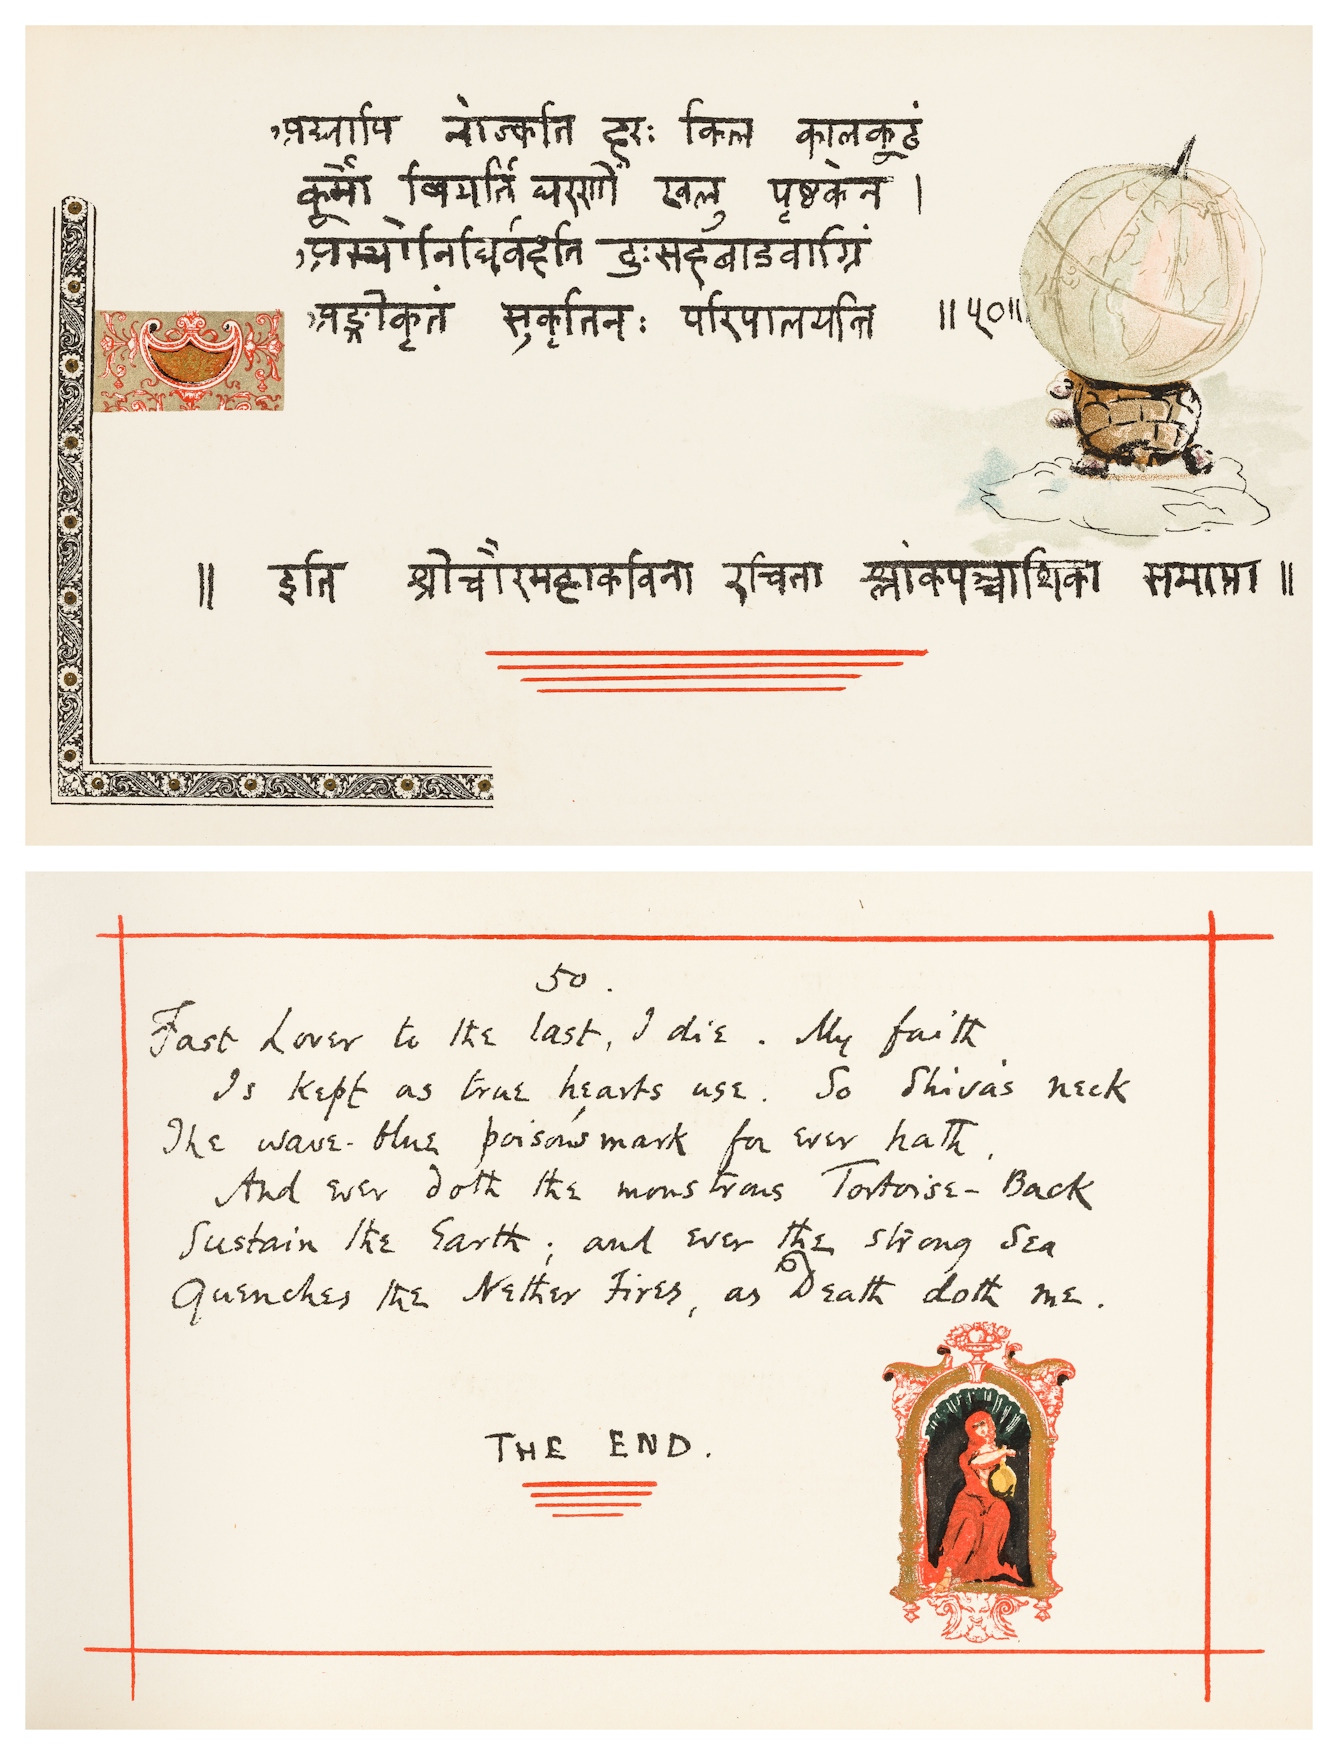 अद्यापि नोज्झति हरः किल कालकूटं
कूर्मो बिभर्ति धरणीं खलु पृष्ठकेन ।
अम्भोनिधिर्वहति दुःसहबाडवाग्निं
अङ्गीकृतं सुकृतिनः परिपालयन्ति ॥ ५० ॥
॥ इति श्रीचौरमहाकविना रचिता श्लोकपञ्चाशिका समाप्ता ॥
50.
Fast Lover to the last, I die. My faith
Is kept as true hearts use. So Shiva's neck
The wave-blue poison's mark for ever hath,
And ever doth the monstrous Tortoise-Back
Sustain the Earth; and ever the strong Sea
Quenches the Nether Fires, as Death doth me.
THE END.